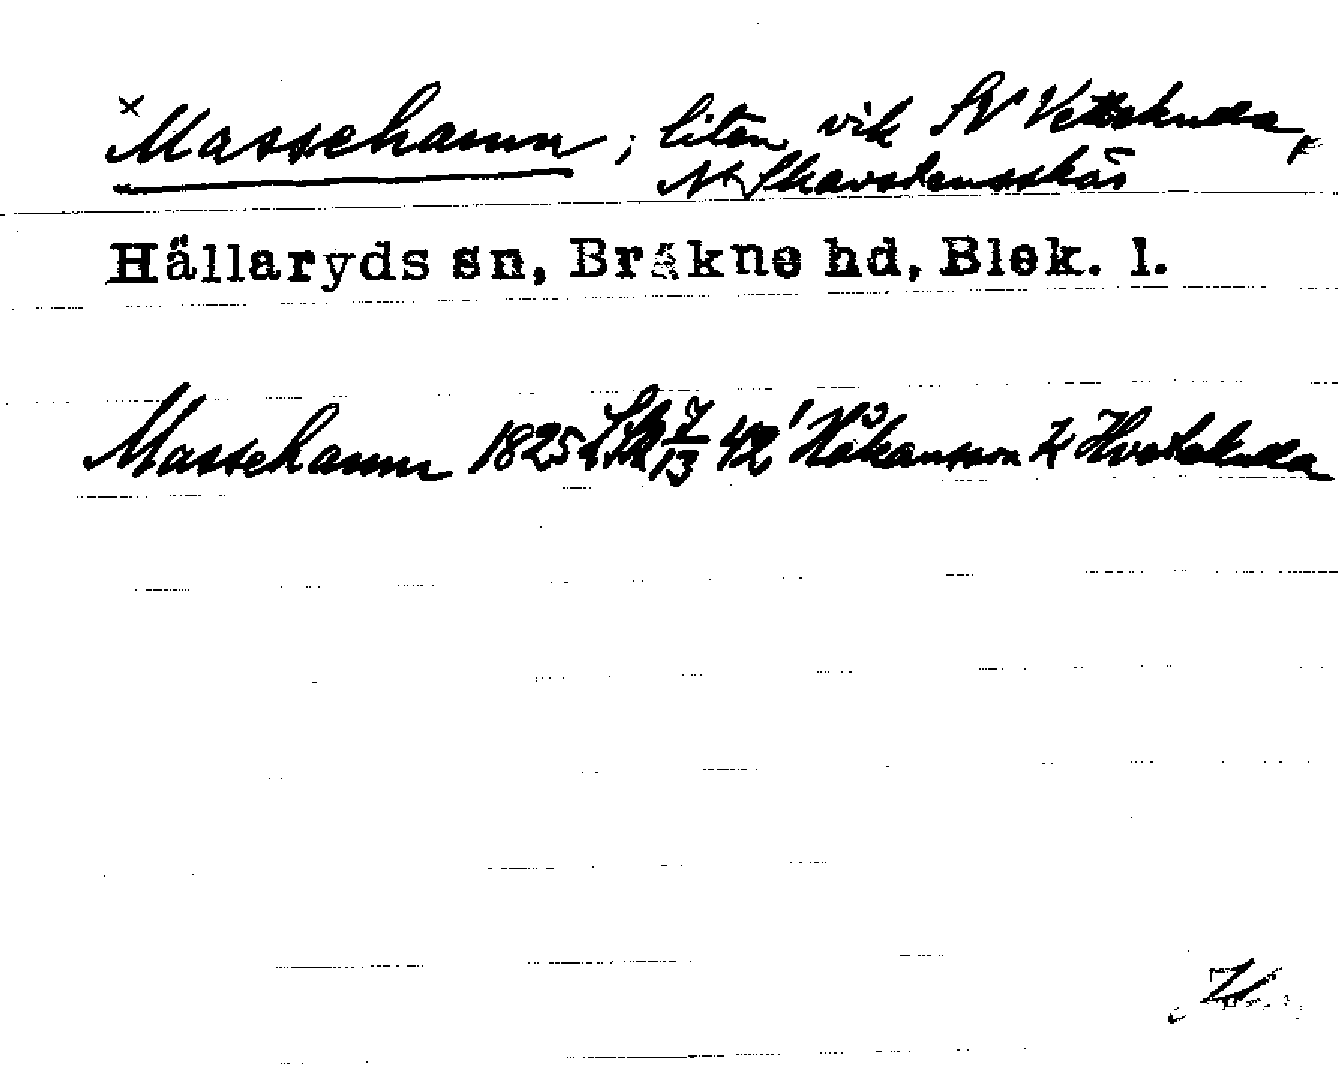 × Massehamn; liten vik SV Vettekulla,
N Skavstensskär
Hällaryds sn, Bräkne hd, Blek. l.
Massehamn 1825 LSk 7/13 42' Håkansson